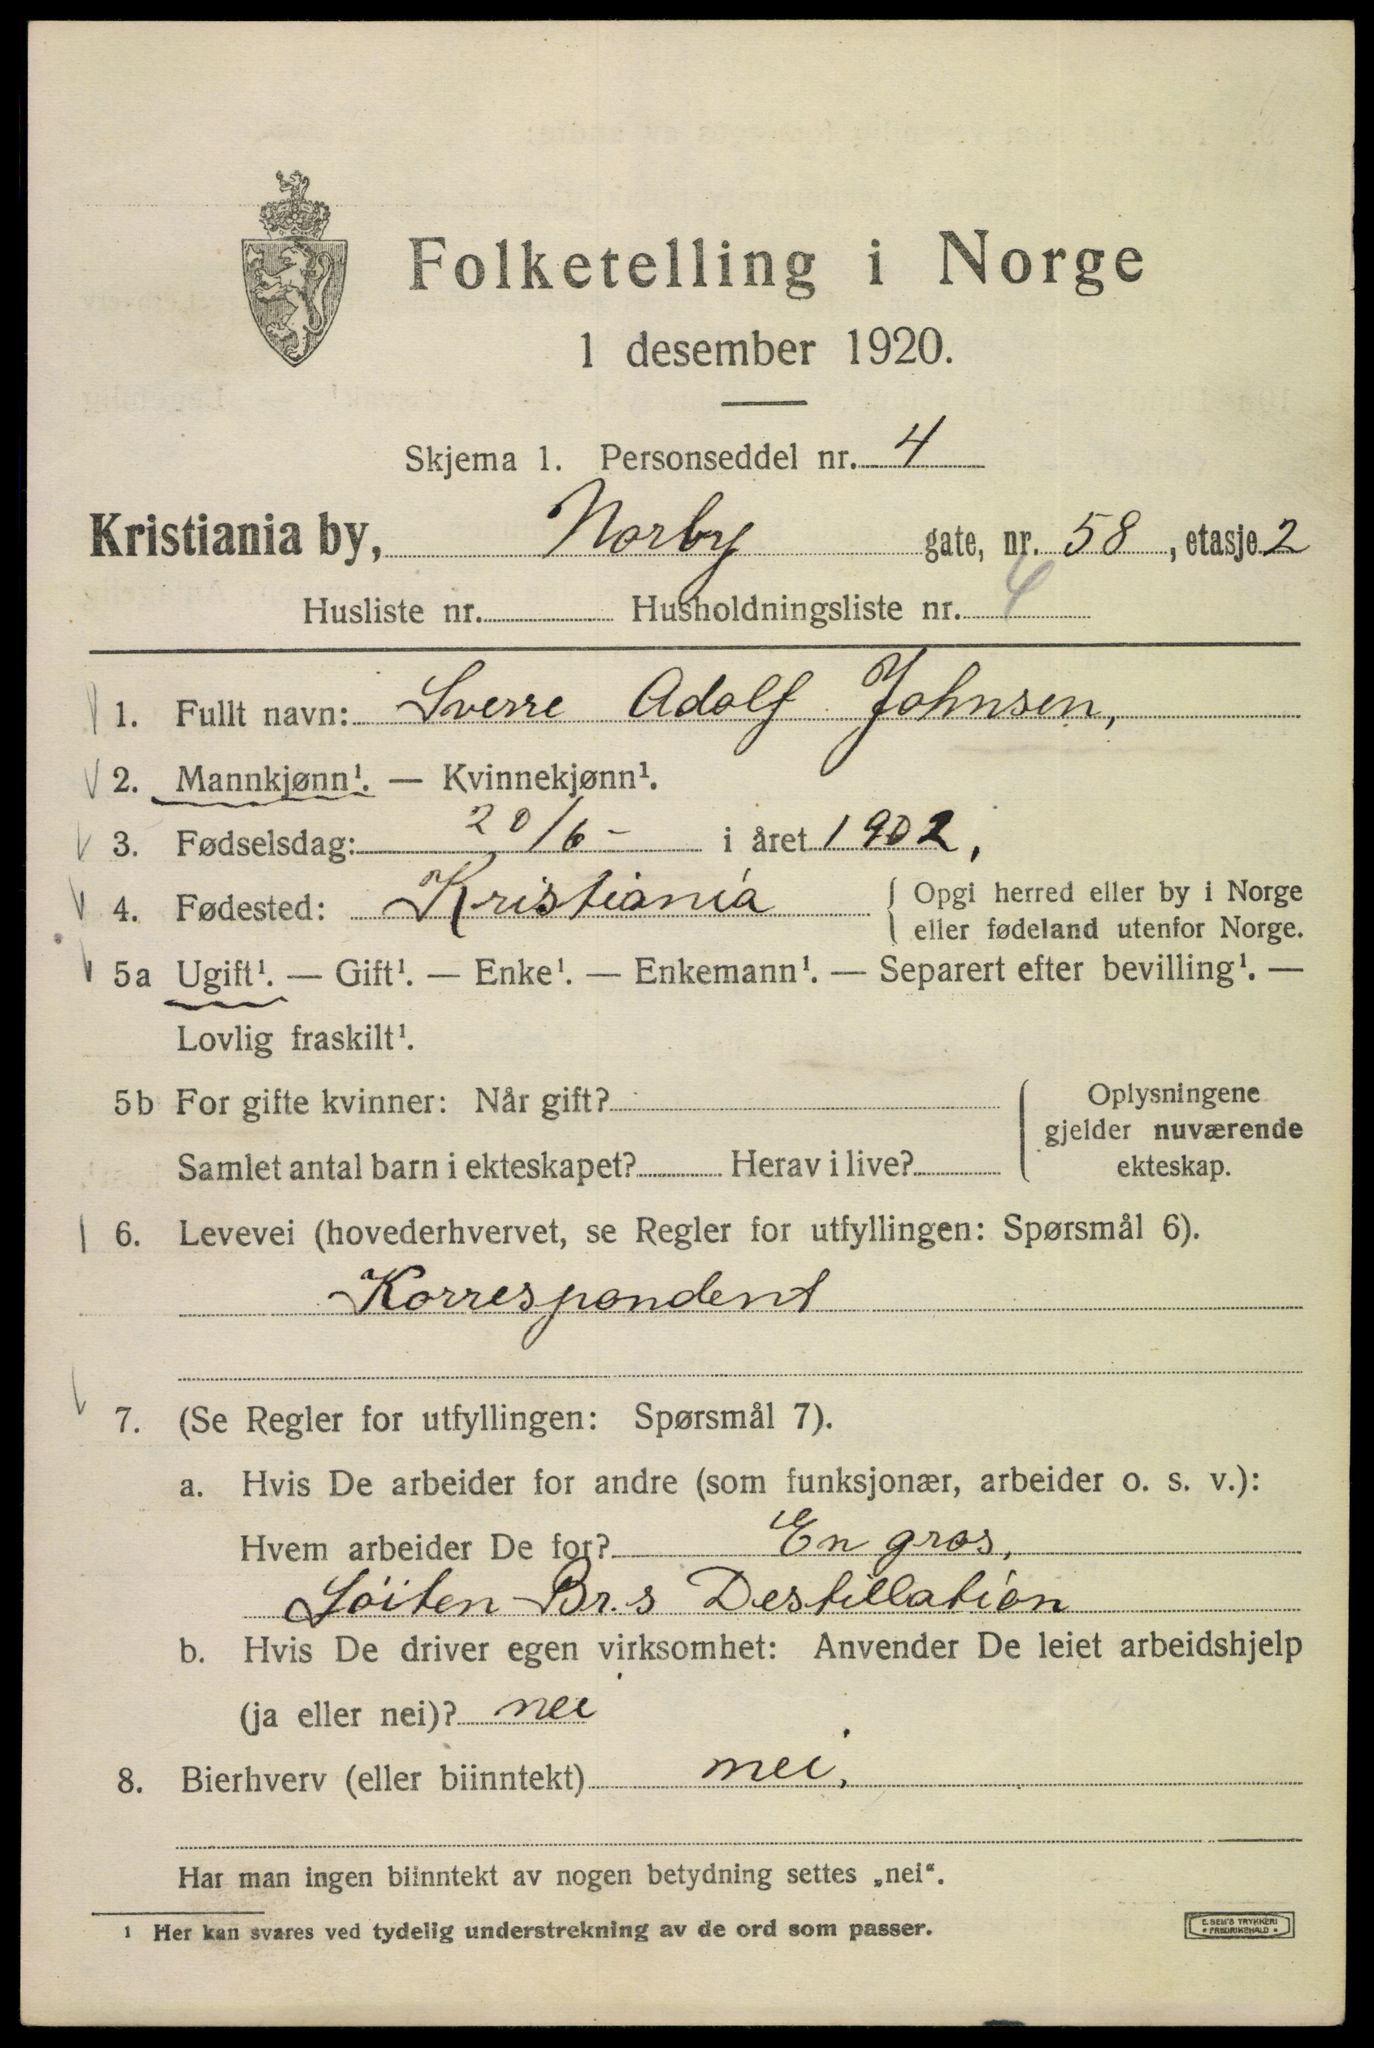 Folketelling i Norge
1 desember 1920.
Skjema 1. Personseddel nr. 4
Kristiania by, Norby gate, nr. 58, etasje 2
Husliste nr. Husholdningsliste nr. 4
1. Fullt navn: Sverre Adolf Johnsen,
2. Mannkjønn¹. — Kvinnekjønn¹.
3. Fødselsdag: 20/6 - i året 1902,
4. Fødested: Kristiania { Opgi herred eller by i Norge
eller fødeland utenfor Norge.
5a Ugift¹. — Gift¹. — Enke¹. — Enkemann¹. — Separert efter bevilling¹. —
Lovlig fraskilt¹.
5b For gifte kvinner: Når gift? { Oplysningene
gjelder nuværende
Samlet antal barn i ekteskapet? Herav i live? ekteskap.
6. Levevei (hovederhvervet, se Regler for utfyllingen: Spørsmål 6).
Korrespondent
7. (Se Regler for utfyllingen: Spørsmål 7).
a. Hvis De arbeider for andre (som funksjonær, arbeider o. s. v.):
Hvem arbeider De for? En gros,
Löiten Br.s Destillation
b. Hvis De driver egen virksomhet: Anvender De leiet arbeidshjelp
(ja eller nei)? nei
8. Bierhverv (eller biinntekt) nei,
Har man ingen biinntekt av nogen betydning settes „nei“.
¹ Her kan svares ved tydelig understrekning av de ord som passer.
E. SEM'S TRYKKERI
• FREDRIKSHALD •